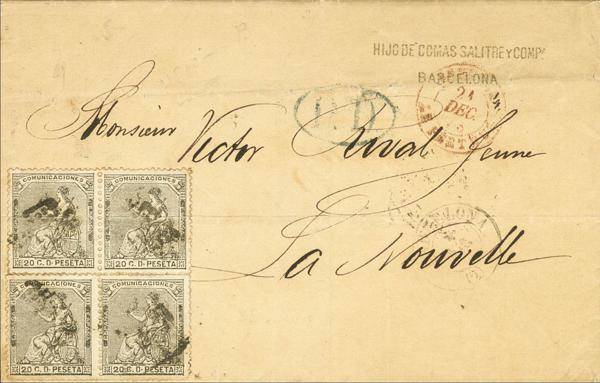 HIJO DE COMAS SALITRE Y COMPª
BARCELONA
21
DEC.
P.D
Monsieur Victor Duval Jeune
La Nouvelle
COMUNICACIONES
COMUNICACIONES
20 C. D PESETA
20 C. D PESETA
COMUNICACIONES
COMUNICACIONES
20 C. D PESETA
20 C. D PESETA